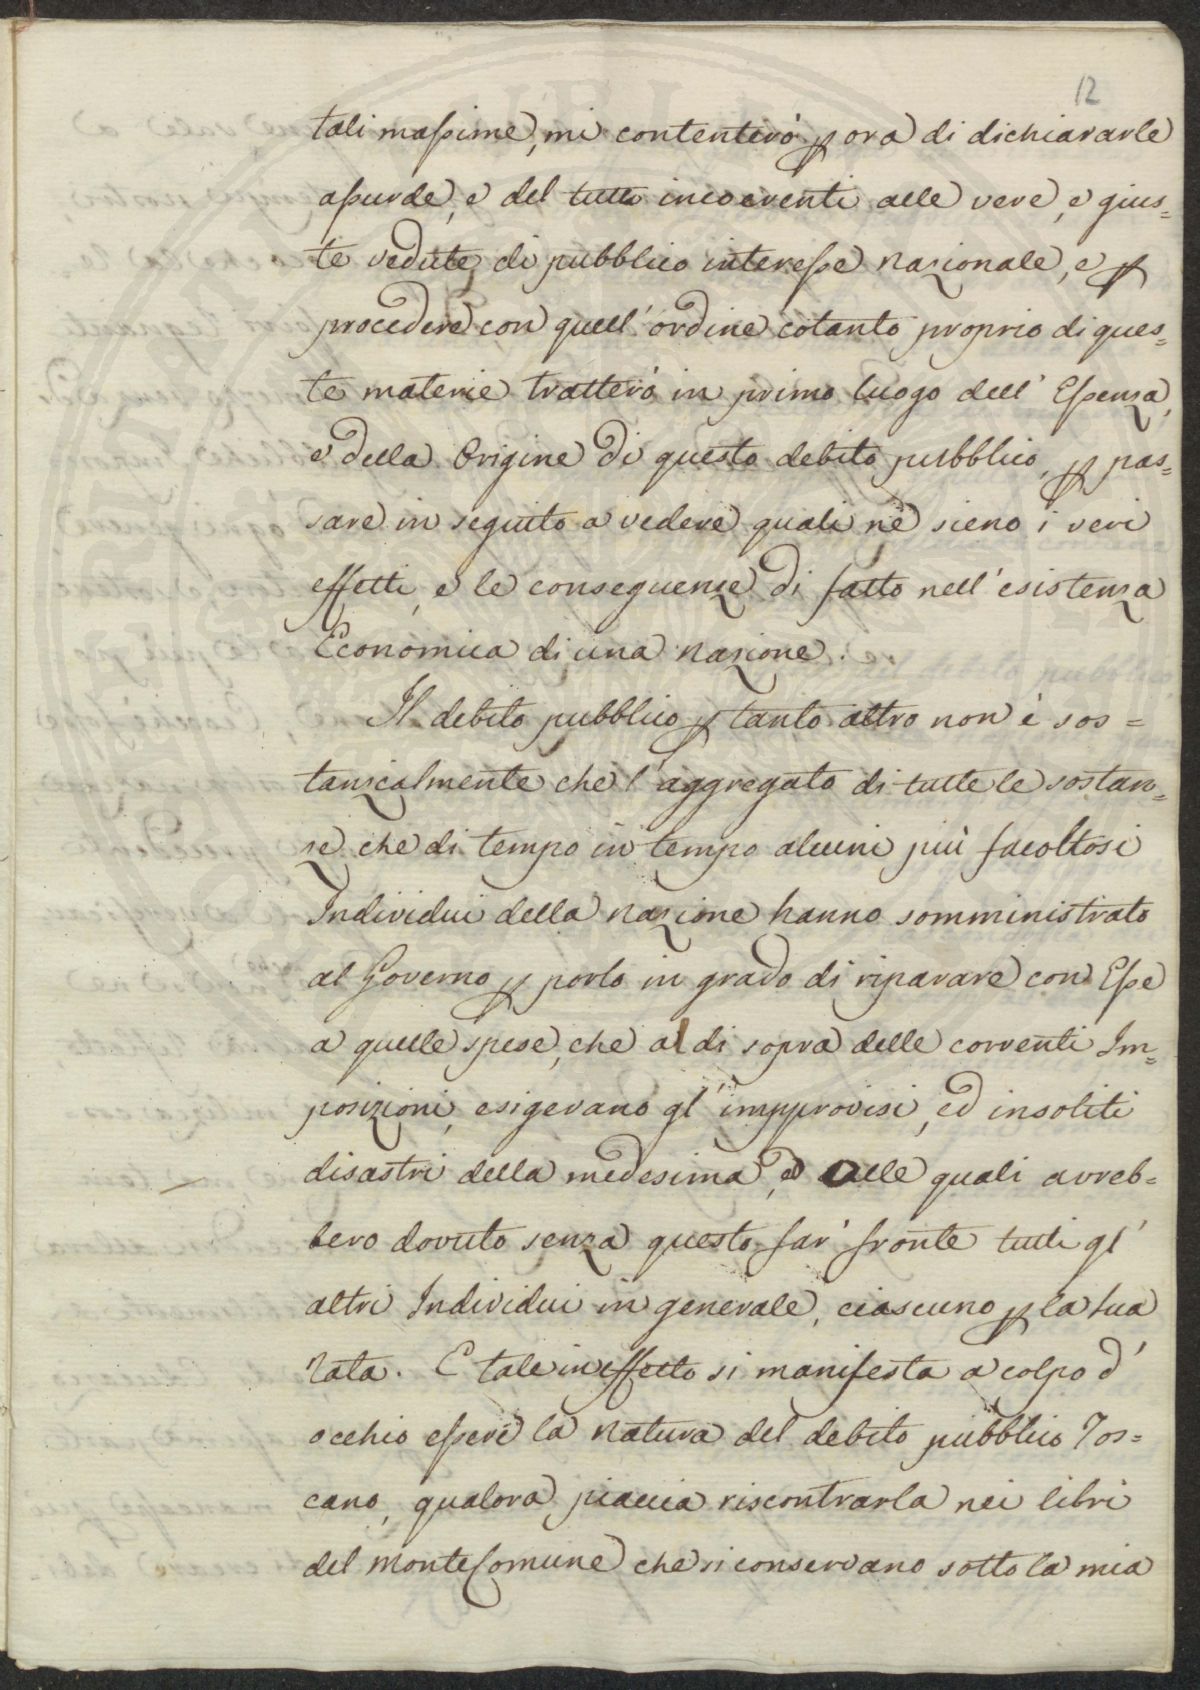 12
tali massime, mi contenterò p ora di dichiararle
assurde, e del tutto incoerenti alle vere, e gius=
te vedute di pubblico interesse nazionale, e p
procedere con quell' ordine cotanto proprio di ques=
te materie tratterò in primo luogo dell' Essenza,
e della Origine di questo debito pubblico, p pas=
sare in seguito a vedere quali ne sieno i veri
effetti, e le conseguenze di fatto nell' esistenza
Economica di una nazione.
Il debito pubblico p tanto altro non è sos=
tanzialmente che l' aggregato di tutte le sostan=
ze che di tempo in tempo alcuni più facoltosi
Individui della nazione hanno somministrato
al Governo p porlo in grado di riparare con Esse
a quelle spese, che al di sopra delle correnti Im=
posizioni, esigevano gl' impprovisi, ed insoliti
disastri della medesima, ed alle quali avreb=
bero dovuto senza questo far fronte tutti gl'
altri Individui in generale, ciascuno p la sua
rata. E tale in effetto si manifesta a colpo d'
occhio essere la natura del debito pubblico Tos=
cano, qualora piaccia riscontrarla nei libri
del Monte Comune che si conservano sotto la mia